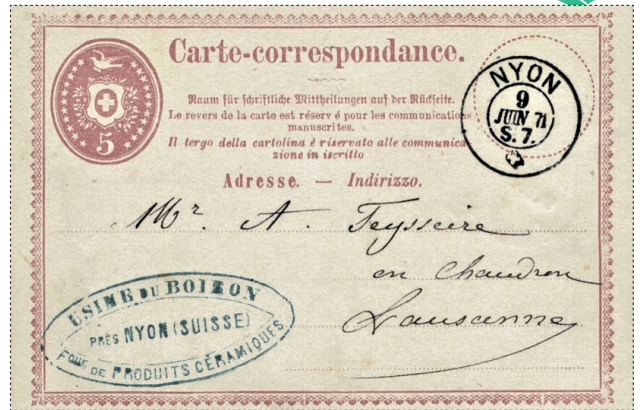 5
Carte-correspondance.
Raum für schriftliche Mittheilungen auf der Rückseite.
Le revers de la carte est réservé pour les communications
manuscrites.
Il tergo della cartolina è riservato alle communica
zione in iscritto
Adresse. — Indirizzo.
NYON
9
JUIN 71
S. 7.
Mr. A. Teysseire
en Chaudron
Lausanne
USINE DU BOIRON
PRÈS NYON (SUISSE)
FQUE DE PRODUITS CÉRAMIQUES